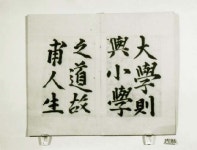 大學則
與小學
之道故
甫人生